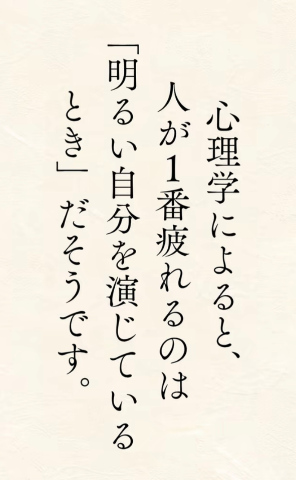 心理学によると、
人が1番疲れるのは
「明るい自分を演じている
とき」だそうです。